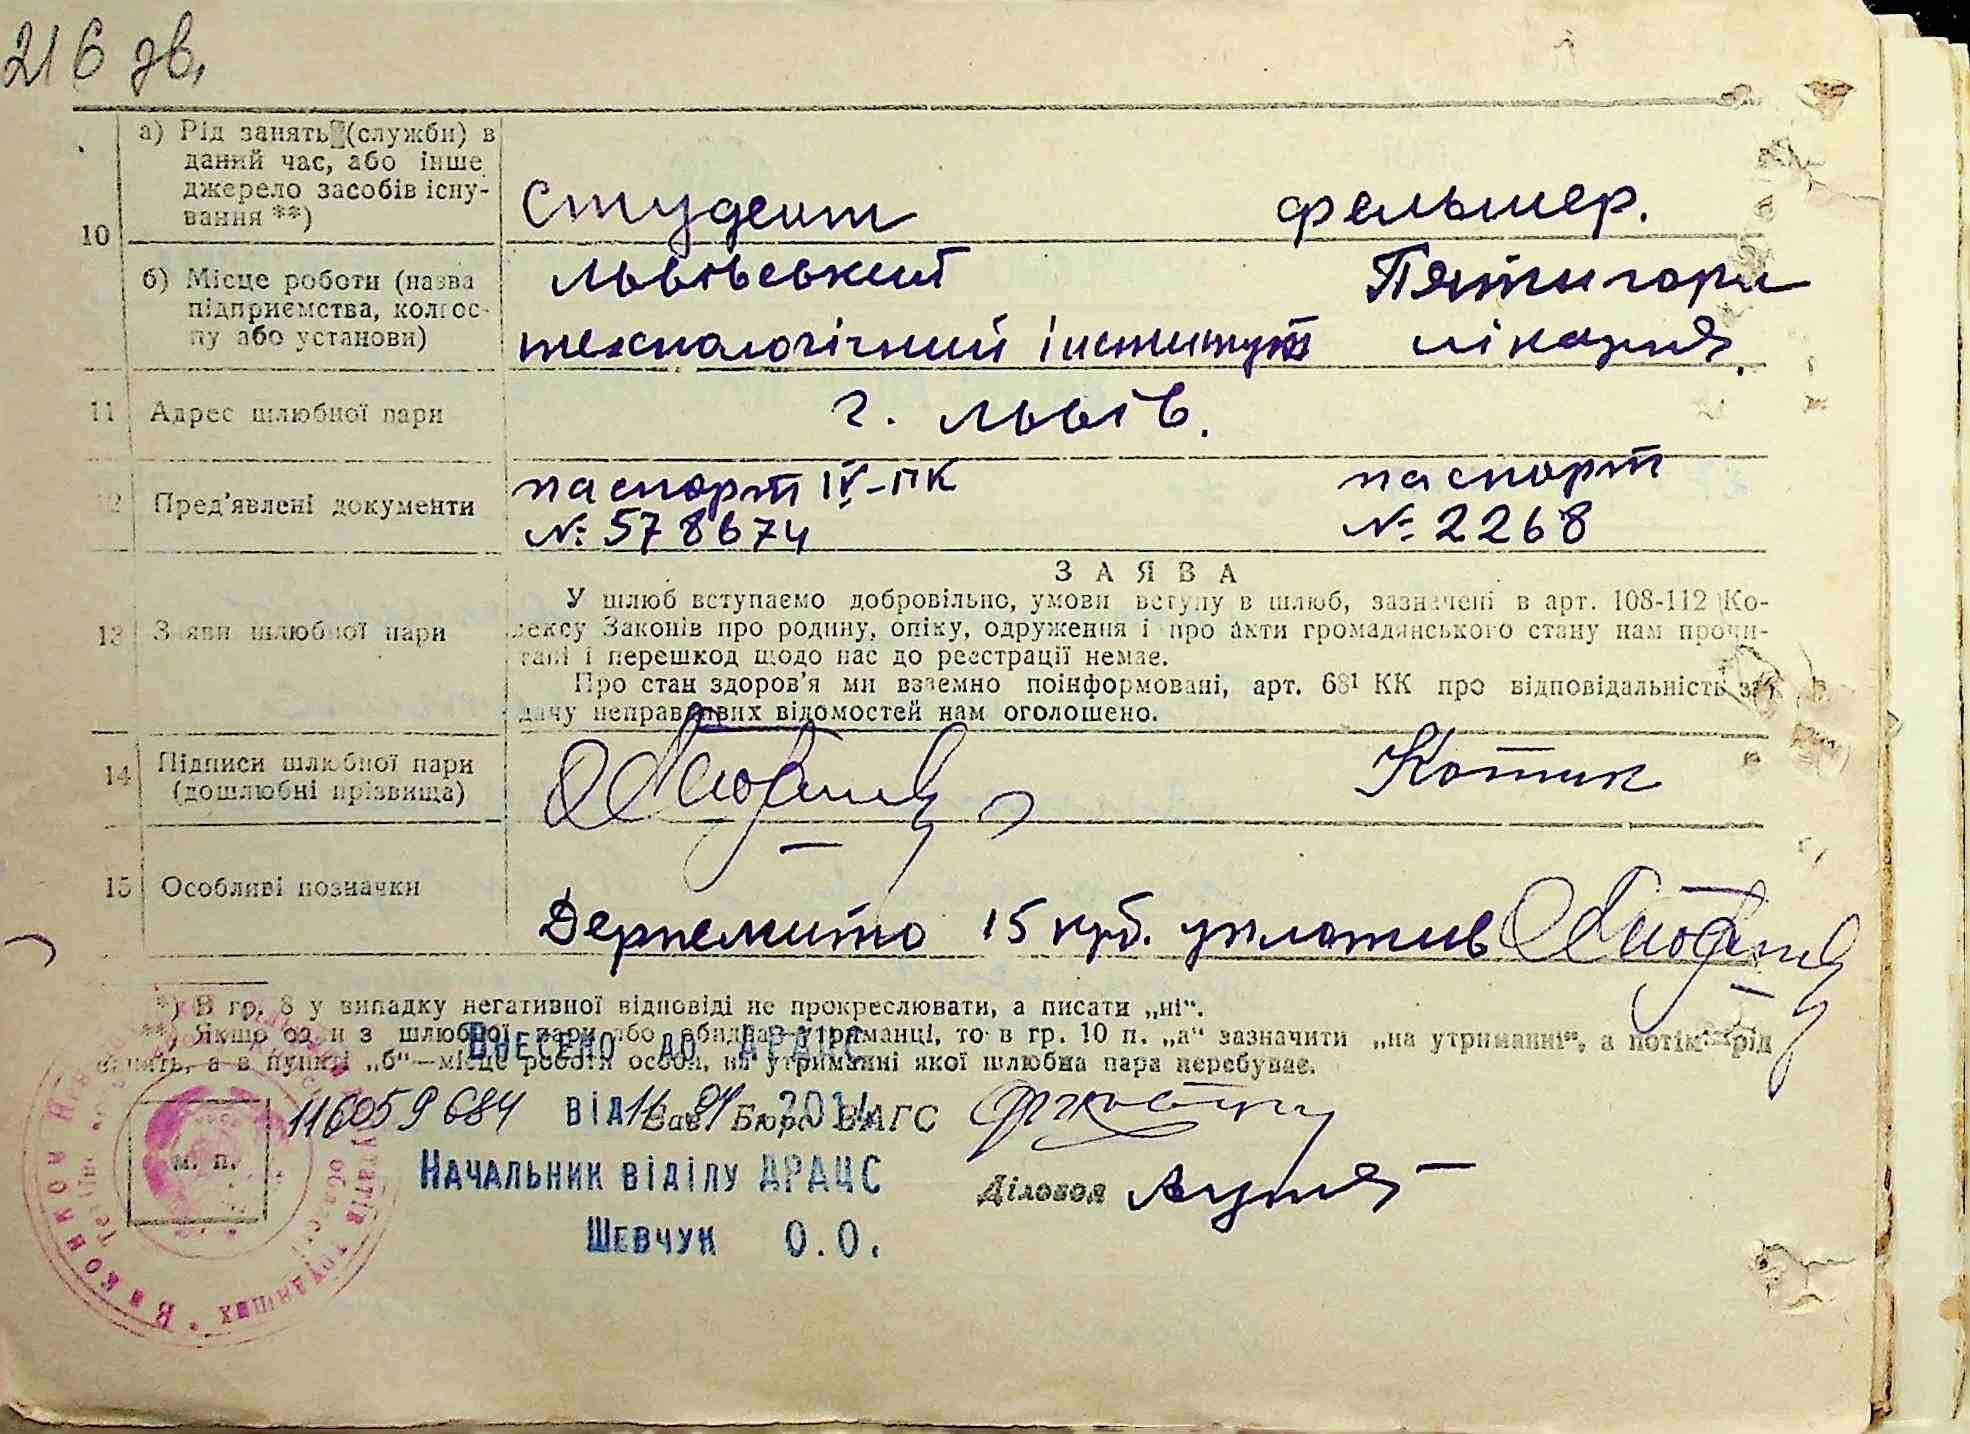 216 зв.
10
а) Рід занять (служби) в
даний час, або інше
джерело засобів існу-
вання **)
Студент
фельшер.
б) Місце роботи (назва
підприємства, колгос-
пу або установи)
Львівський
технологічний інститут
Пятигори
лікарня
11 Адрес шлюбної пари
г. Львів.
12 Пред'явлені документи
паспорт IV-ПК
№ 578674
паспорт
№ 2268
13 Заяви шлюбної пари
ЗАЯВА
У шлюб вступаємо добровільно, умови вступу в шлюб, зазначені в арт. 108-112 Ко-
дексу Законів про родину, опіку, одруження і про акти громадянського стану нам прочи-
тані і перешкод щодо нас до реєстрації немає.
Про стан здоров'я ми взаємно поінформовані, арт. 68¹ КК про відповідальність за
дачу неправдивих відомостей нам оголошено.
14 Підписи шлюбної пари
(дошлюбні прізвища)
Котик
15 Особливі позначки
Держмито 15 крб. уплатив
*) В гр. 8 у випадку негативної відповіді не прокреслювати, а писати „ні“.
**) Якщо один з шлюбної пари або обидва утриманці, то в гр. 10 п. „а“ зазначити „на утриманні“, а потім рід
занять, а в пункті „б“—місце роботи особи, на утриманні якої шлюбна пара перебуває.
Внесено до ДРАЦС
116059684 від 2014
Зав. Бюро ЗАГС
м. п.
Начальник відділу ДРАЦС
Діловод
Шевчук О.О.